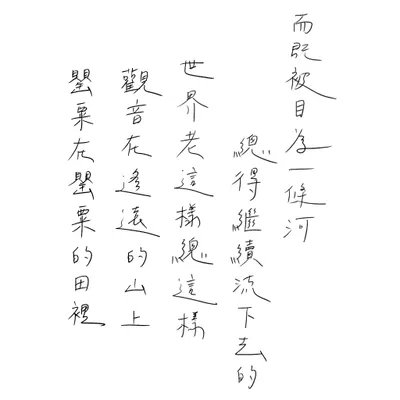 而既被目為一條河
總得繼續流下去的
世界老這樣總這樣
觀音在遙遠的山上
罌粟在罌粟的田裡